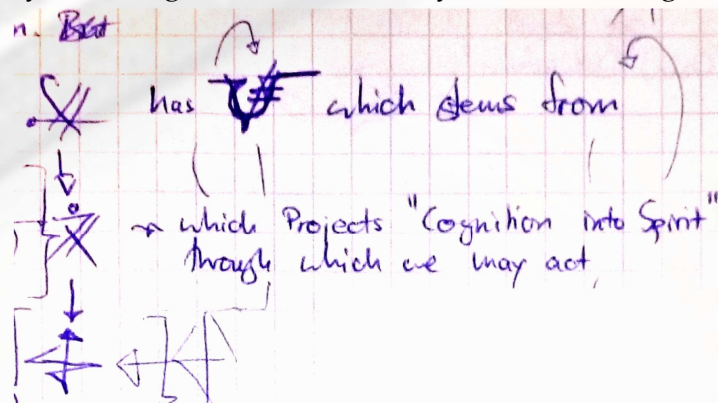 n. But
has which stems from
which Projects "Cognition into Spirit"
through which we may act,